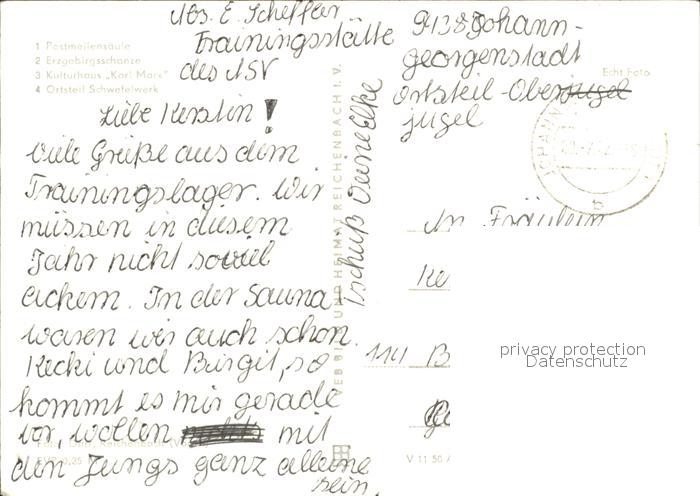 Abs. E. Scheffer
Trainingsstätte
des ASV
9438 Johann-
georgenstadt
Ortsteil-Oberjugel
jugel
1 Postmeilensäule
2 Erzgebirgsschanze
3 Kulturhaus „Karl Marx"
4 Ortsteil Schwefelwerk
Echt Foto
Liebe Kerstin!
Viele Grüße aus dem
Trainingslager. Wir
müssen in diesem
Jahr nicht soviel
ackern. In der Sauna
waren wir auch schon.
Kecki und Birgit, so
kommt es mir gerade
vor, wollen mit
den Jungs ganz alleine
sein.
Tschüß Deine Elke
VEB BILD UND HEIMAT REICHENBACH I. V.
An Fräulein
Ke
1141 B
V 11 50 A
privacy protection
Datenschutz